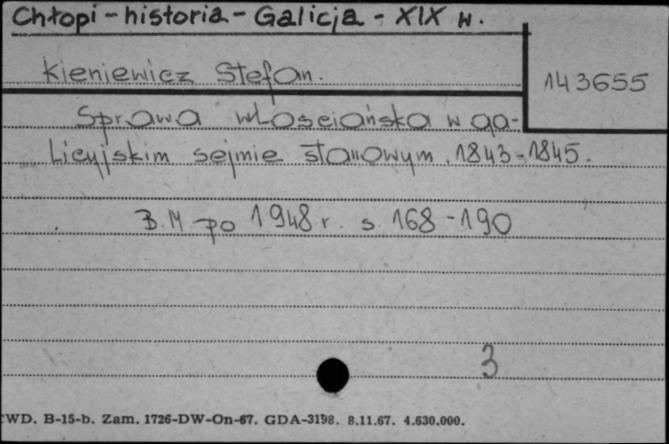 Chłopi - historia - Galicja - XIX w.
Kieniewicz Stefan.
143655
Sprawa włościańska w ga-
licyjskim sejmie stanowym. 1843-1845.
B.M po 1948 r. s. 168-190
3
WD. B-15-b. Zam. 1726-DW-On-67. GDA-3198. 8.11.67. 4.630.000.